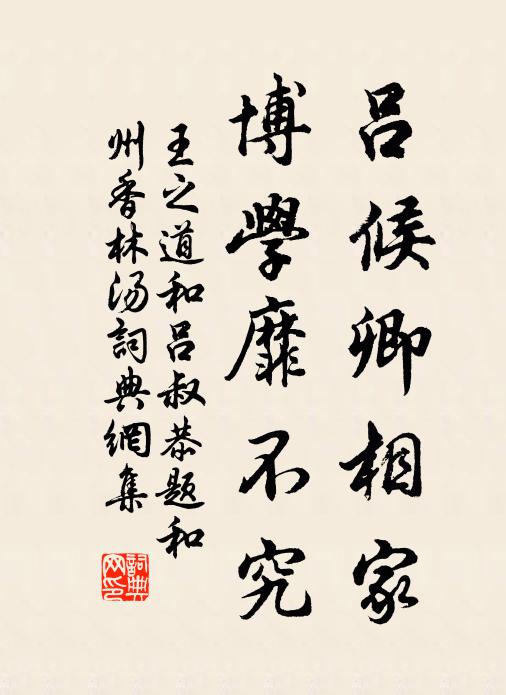 吕候卿相家
博學靡不究
王之道和吕叔恭题和
州香林汤詞典網集
詞典网印